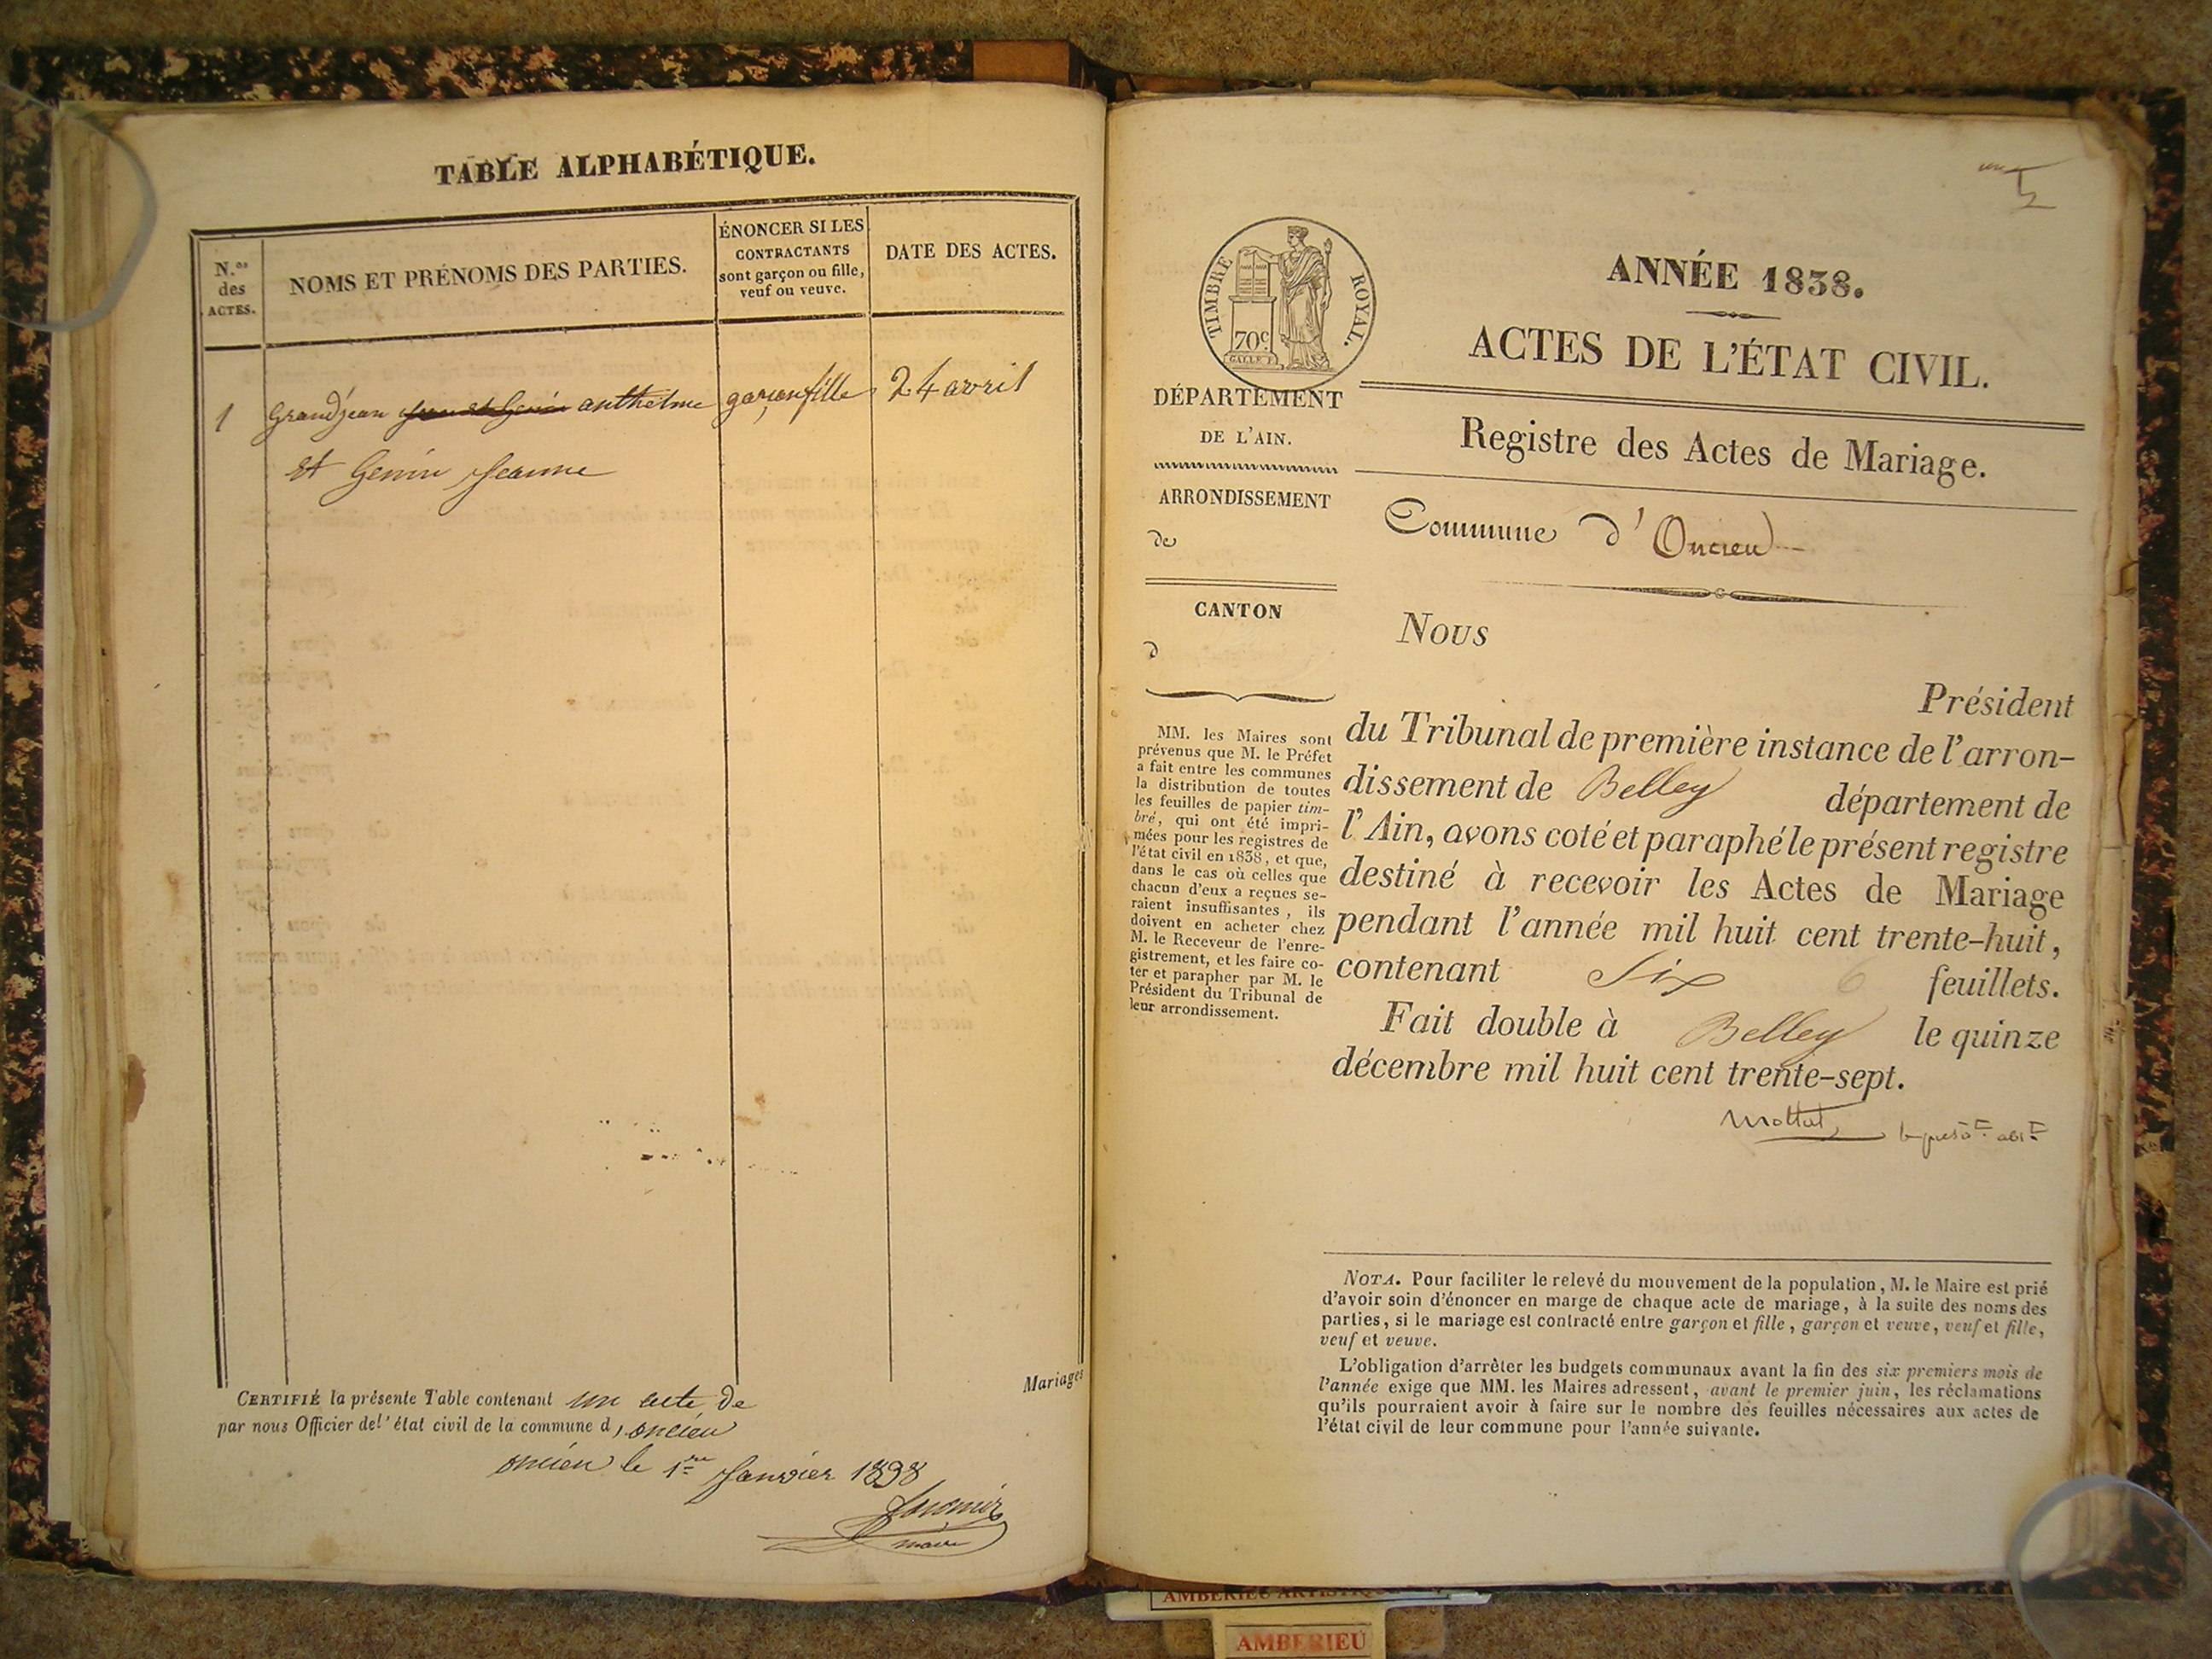 TABLE ALPHABÉTIQUE.
N.os
des
ACTES.
NOMS ET PRÉNOMS DES PARTIES.
ÉNONCER SI LES
CONTRACTANTS
sont garçon ou fille,
veuf ou veuve.
DATE DES ACTES.
1 Grandjean anthelme garçon fille 24 avril
et Genin Jeanne
Mariages
CERTIFIÉ la présente Table contenant un acte de
par nous Officier de l'état civil de la commune d, oncieu
oncieu le 1re Janvier 1838
maire
ANNÉE 1838.
TIMBRE ROYAL.
70c.
ACTES DE L'ÉTAT CIVIL.
DÉPARTEMENT
DE L'AIN.
Registre des Actes de Mariage.
ARRONDISSEMENT
de
Commune d'Oncieu
CANTON
d
Nous
Président
du Tribunal de première instance de l'arron-
dissement de Belley département de
l'Ain, avons coté et paraphé le présent registre
destiné à recevoir les Actes de Mariage
pendant l'année mil huit cent trente-huit,
contenant Six 6 feuillets.
Fait double à Belley le quinze
décembre mil huit cent trente-sept.
Mottat
MM. les Maires sont
prévenus que M. le Préfet
a fait entre les communes
la distribution de toutes
les feuilles de papier tim-
bré, qui ont été impri-
mées pour les registres de
l'état civil en 1838, et que,
dans le cas où celles que
chacun d'eux a reçues se-
raient insuffisantes, ils
doivent en acheter chez
M. le Receveur de l'enre-
gistrement, et les faire co-
ter et parapher par M. le
Président du Tribunal de
leur arrondissement.
NOTA. Pour faciliter le relevé du mouvement de la population, M. le Maire est prié
d'avoir soin d'énoncer en marge de chaque acte de mariage, à la suite des noms des
parties, si le mariage est contracté entre garçon et fille, garçon et veuve, veuf et fille,
veuf et veuve.
L'obligation d'arrêter les budgets communaux avant la fin des six premiers mois de
l'année exige que MM. les Maires adressent, avant le premier juin, les réclamations
qu'ils pourraient avoir à faire sur le nombre des feuilles nécessaires aux actes de
l'état civil de leur commune pour l'année suivante.
AMBERIEU